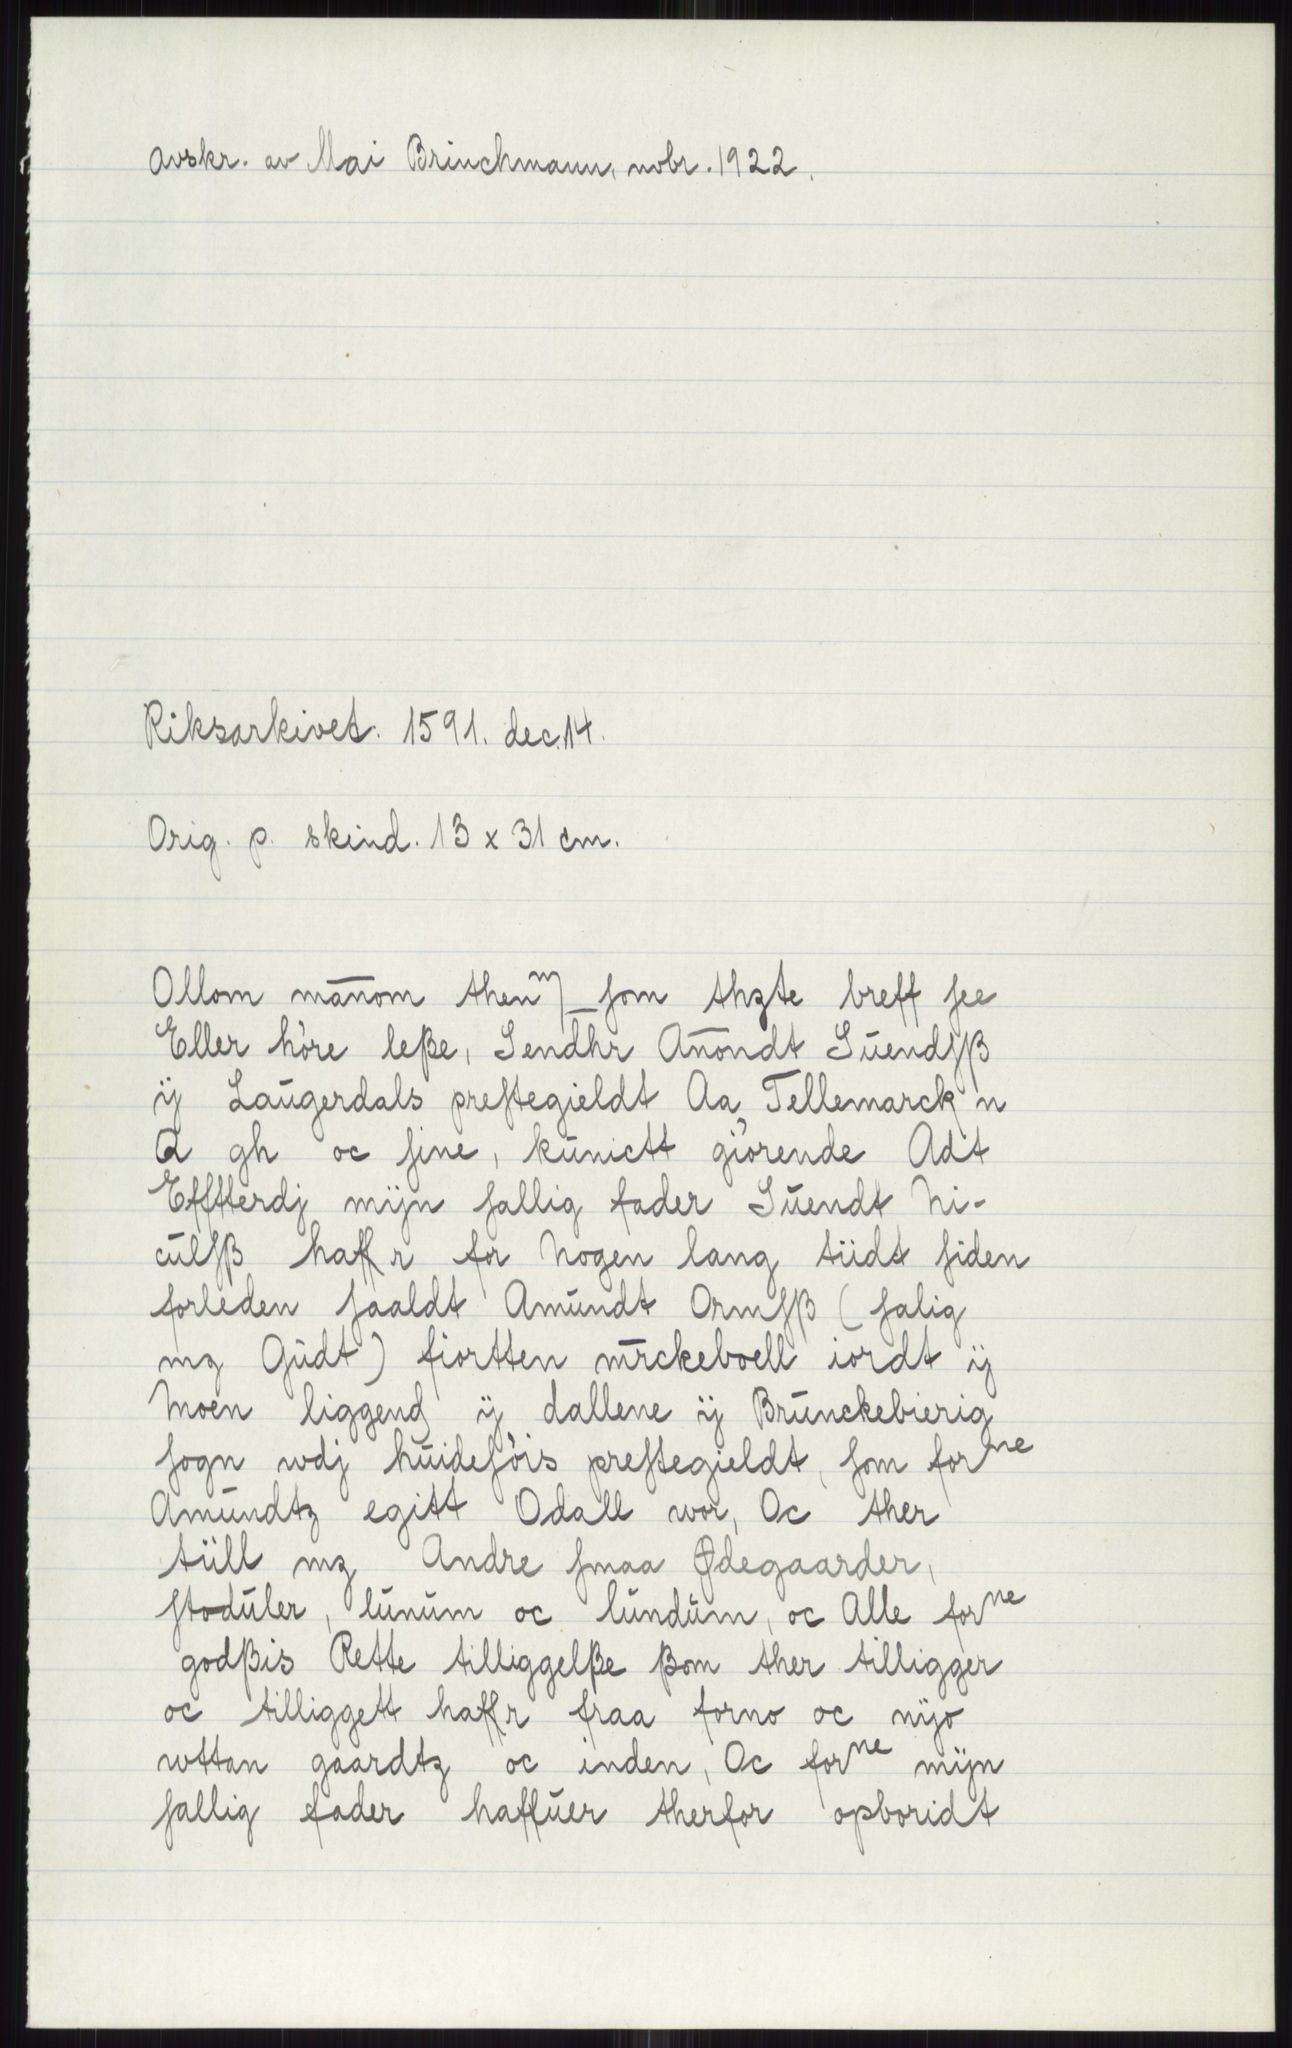 Avskr. av Mai Brinchmann, nvbr. 1922.
Riksarkivet. 1591. dec. 14.
Orig. p. skind. 13 x 31 cm.
Ollom man̄om thenn̄ ſom thʒte breff ſee
Eller höre leße, Sendhr An̄ondt Sŭendſß
ij Laŭgerdals preſtegieldt Aa Tellemarck n
Q gh oc ſine, kŭnictt giörende Adt
Effſterdj mijn ſallig fader Sŭendt Ni-
cŭlſß haffr for Nogen lang tiidt ſiden
forleden ſaaldt Amŭndt Ormſß (ſalig
mʒ Gŭdt) fiortten mr̄ckeboell iordt ij
Moen liggend ij dallene ij Brŭnckebierig
ſogn wdj hŭideſöis preſtegieldt, ſom forⁿᵉ
Amŭndtʒ egitt Odall wor, Oc ther
tiill mʒ Andre ſmaa Ødegaarder,
ſtodŭler, lŭnŭm oc lŭndŭm, oc Alle forⁿᵉ
godßis Rette tilliggelße ßom ther tilligger
oc tilliggett haffr fraa forno oc nijo
wttan gaardtʒ oc inden, Oc forⁿᵉ mijn
ſallig fader haffŭer therfor opboridt